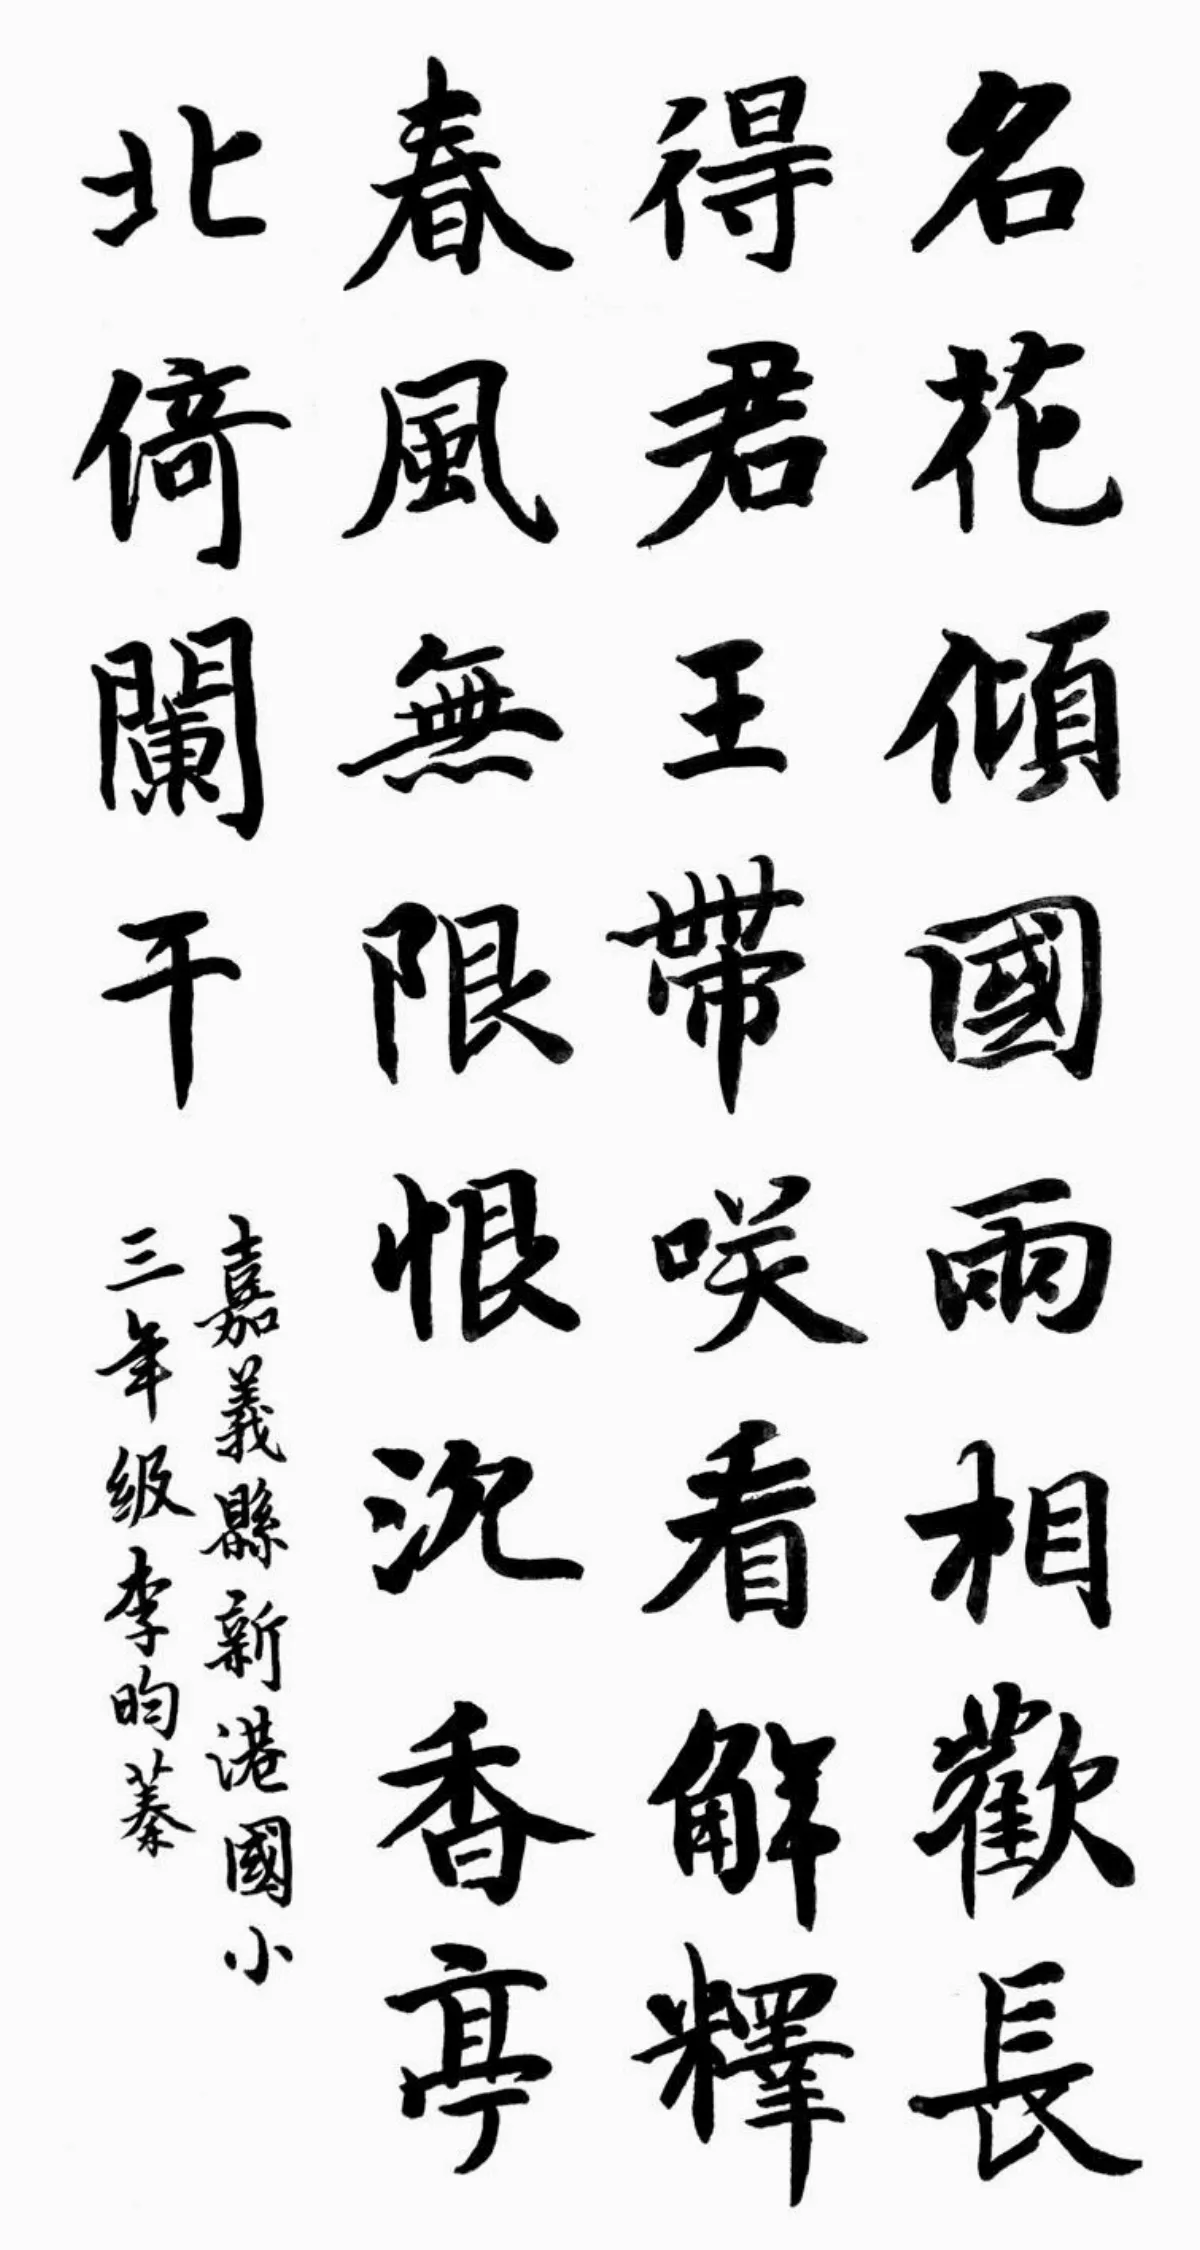 名花傾國雨相歡長
得君王帶咲看解釋
春風無限恨沉香亭
北倚闌干
嘉義縣新港國小
三年級李昀蓁